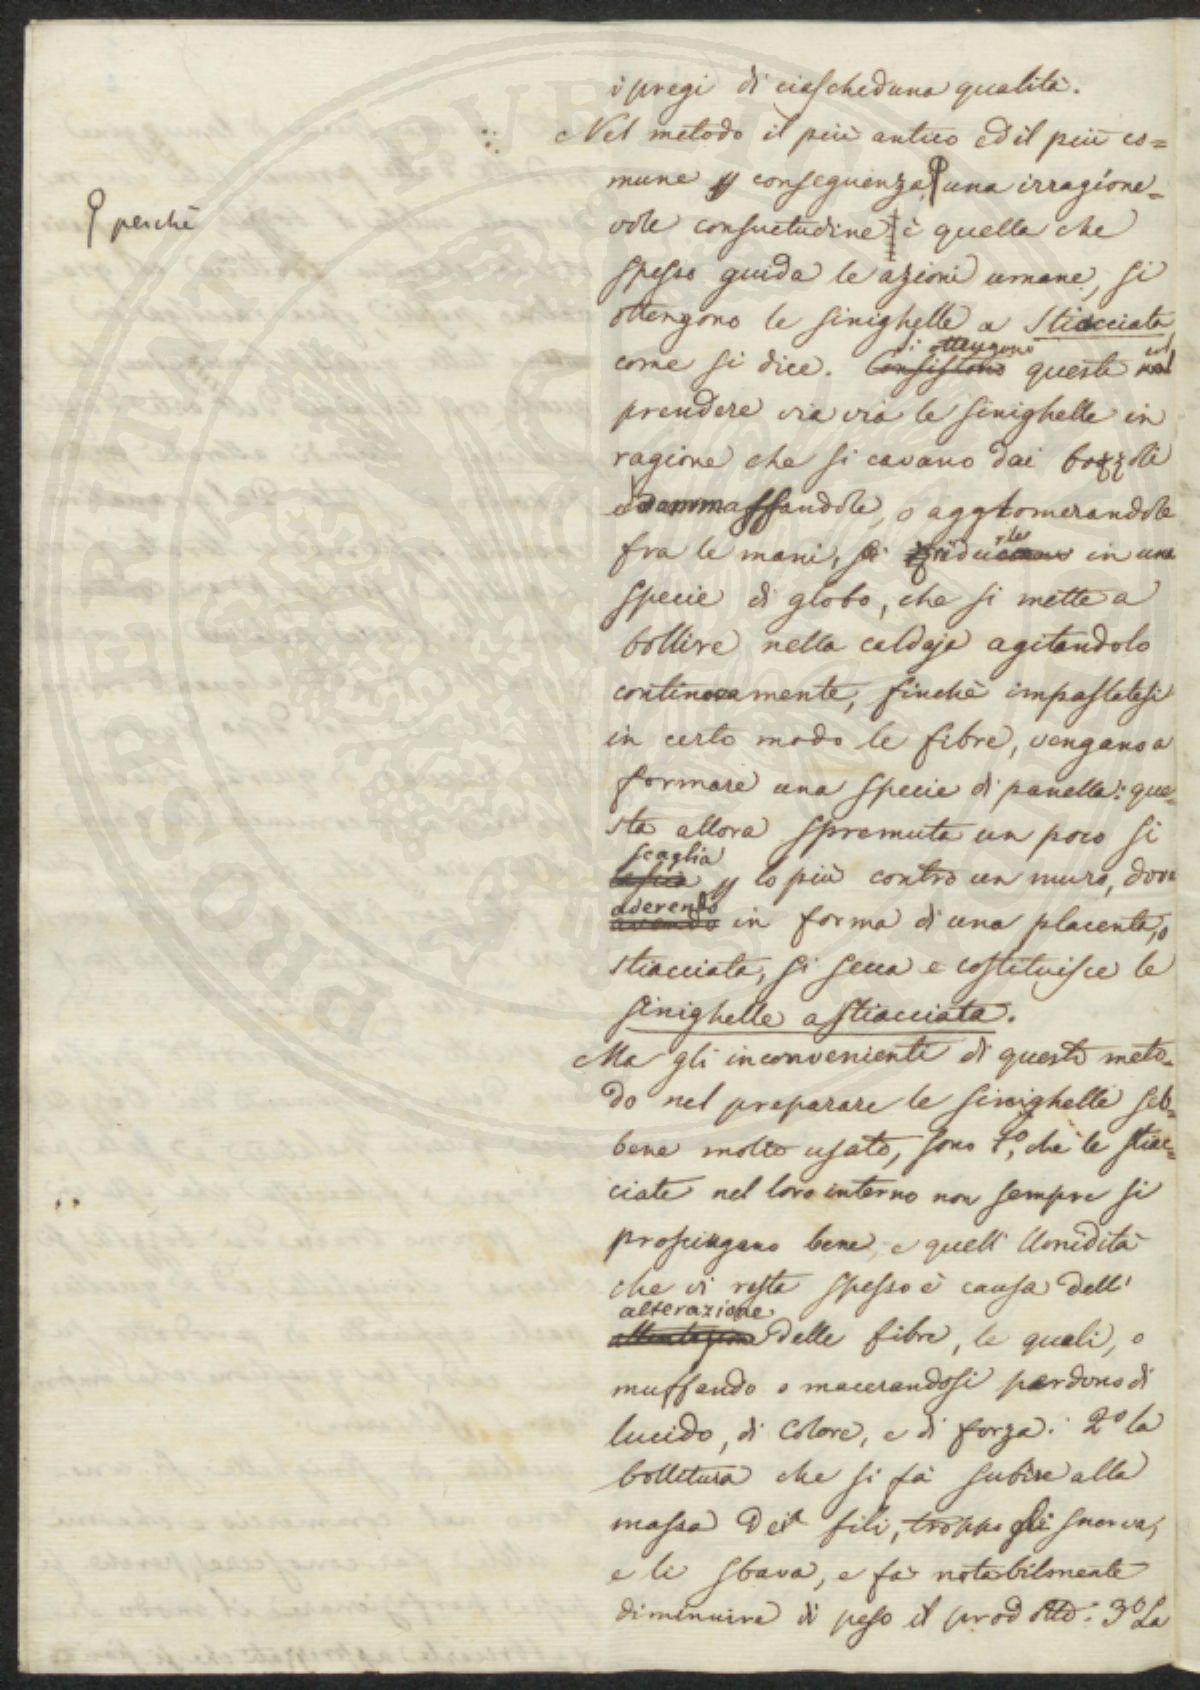 i pregi di ciascheduna qualità.
Nel metodo il più antico ed il più co=
mune p conseguenza, una irragione=
perchè
vole consuetudine è quella che
spesso guida le azioni umane, si
ottengono le sinighelle a stiacciata
come si dice. Consistono si ottengono queste nel col
prendere via via le sinighelle in
ragione che si cavano dai bozzoli
ed ammassandole, o agglomerandole
fra le mani, si riducono rle in una
specie di globo, che si mette a
bollire nella caldaja agitandolo
continovamente, finchè impastatesi
in certo modo le fibre, vengano a
formare una specie di panella: que=
sta allora spremuta un poco si
lascia scaglia p lo più contro un muro, dove
avendo aderendo in forma di una placenta, o
stiacciata, si secca e costituisce le
sinighelle a stiacciata.
Ma gli inconvenienti di questo meto=
do nel preparare le sinighelle seb=
bene molto usato, sono 1º, che le stiac=
ciate nel loro interno non sempre si
prosciugano bene, e quell' Umidità
che vi resta spesso è causa dell'
alterazione delle fibre, le quali, o
muffando o macerandosi perdono di
lucido, di colore, e di forza: 2º la
bollitura che si fà subire alla
massa dei fili, troppo li snerva,
e li sbava, e fà notabilmente
diminuire di peso il prodotto: 3º La
PROSPERITATI PUBLICAE